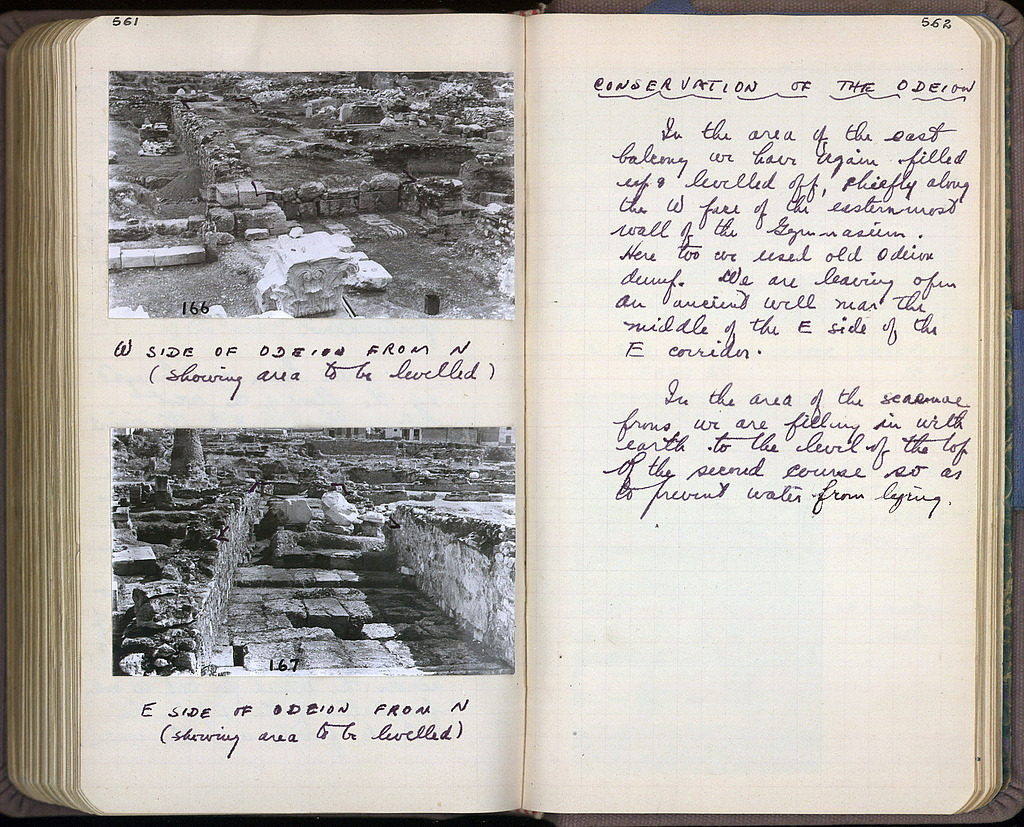 561
166
W SIDE OF ODEION FROM N
(showing area to be levelled)
167
E SIDE OF ODEION FROM N
(showing area to be levelled)
562
CONSERVATION OF THE ODEION
In the area of the east
balcony we have again filled
up & levelled off, chiefly along
the W face of the easternmost
wall of the Gymnasium.
Here too we used old Odeion
dump. We are leaving open
an ancient well near the
middle of the E side of the
E corridor.
In the area of the scaenae
frons we are filling in with
earth to the level of the top
of the second course so as
to prevent water from lying.